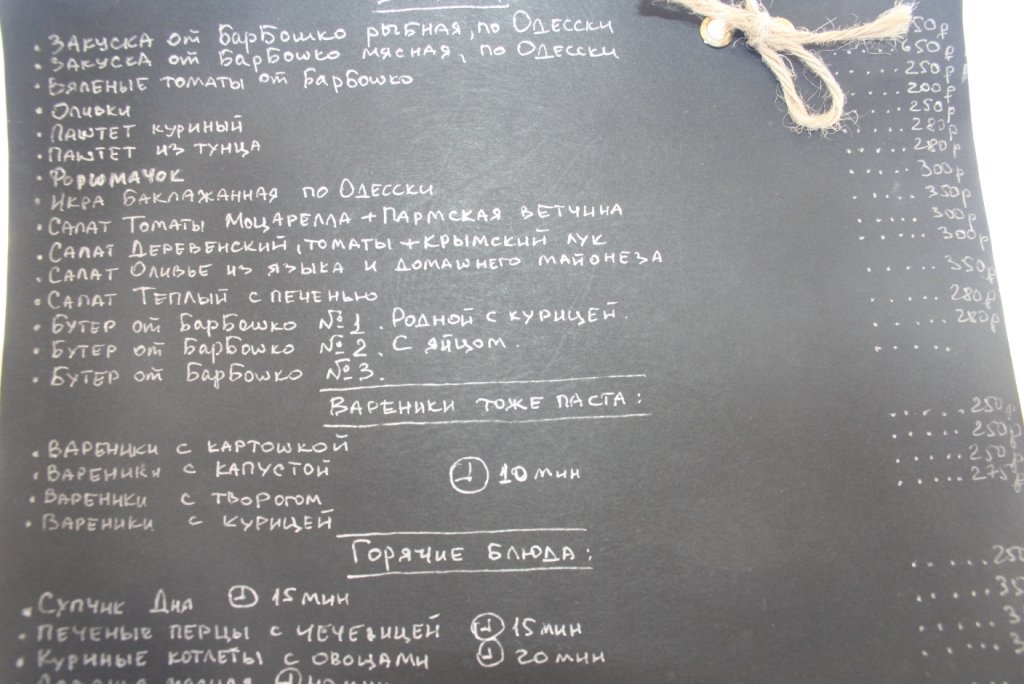 • Закуска от БарБошко рыбная, по Одесски 50р
• Закуска от БарБошко мясная, по Одесски .....650р
• Вяленые томаты от БарБошко .....250р
• Оливки .....200р
• Паштет куриный .....250р
• Паштет из тунца .....280р
• Форшмачок .....280р
• Икра Баклажанная по Одесски .....300р
• Салат Томаты Моцарелла + Пармская ветчина .....350р
• Салат Деревенский, томаты + крымский лук .....300р
• Салат Оливье из языка и домашнего майонеза .....300р
• Салат Теплый с печенью .....350р
• Бутер от БарБошко №1. Родной с курицей. .....280р
• Бутер от БарБошко №2. С яйцом. .....280р
• Бутер от БарБошко №3. .....
Вареники тоже паста:
• Вареники с картошкой .....250р
• Вареники с капустой .....250р
• Вареники с творогом 10 мин .....250р
• Вареники с курицей .....275р
Горячие блюда:
• Супчик Дня 15 мин .....250
• Печеные перцы с чечевицей 15 мин .....35
• Куриные котлеты с овощами 20 мин .....3